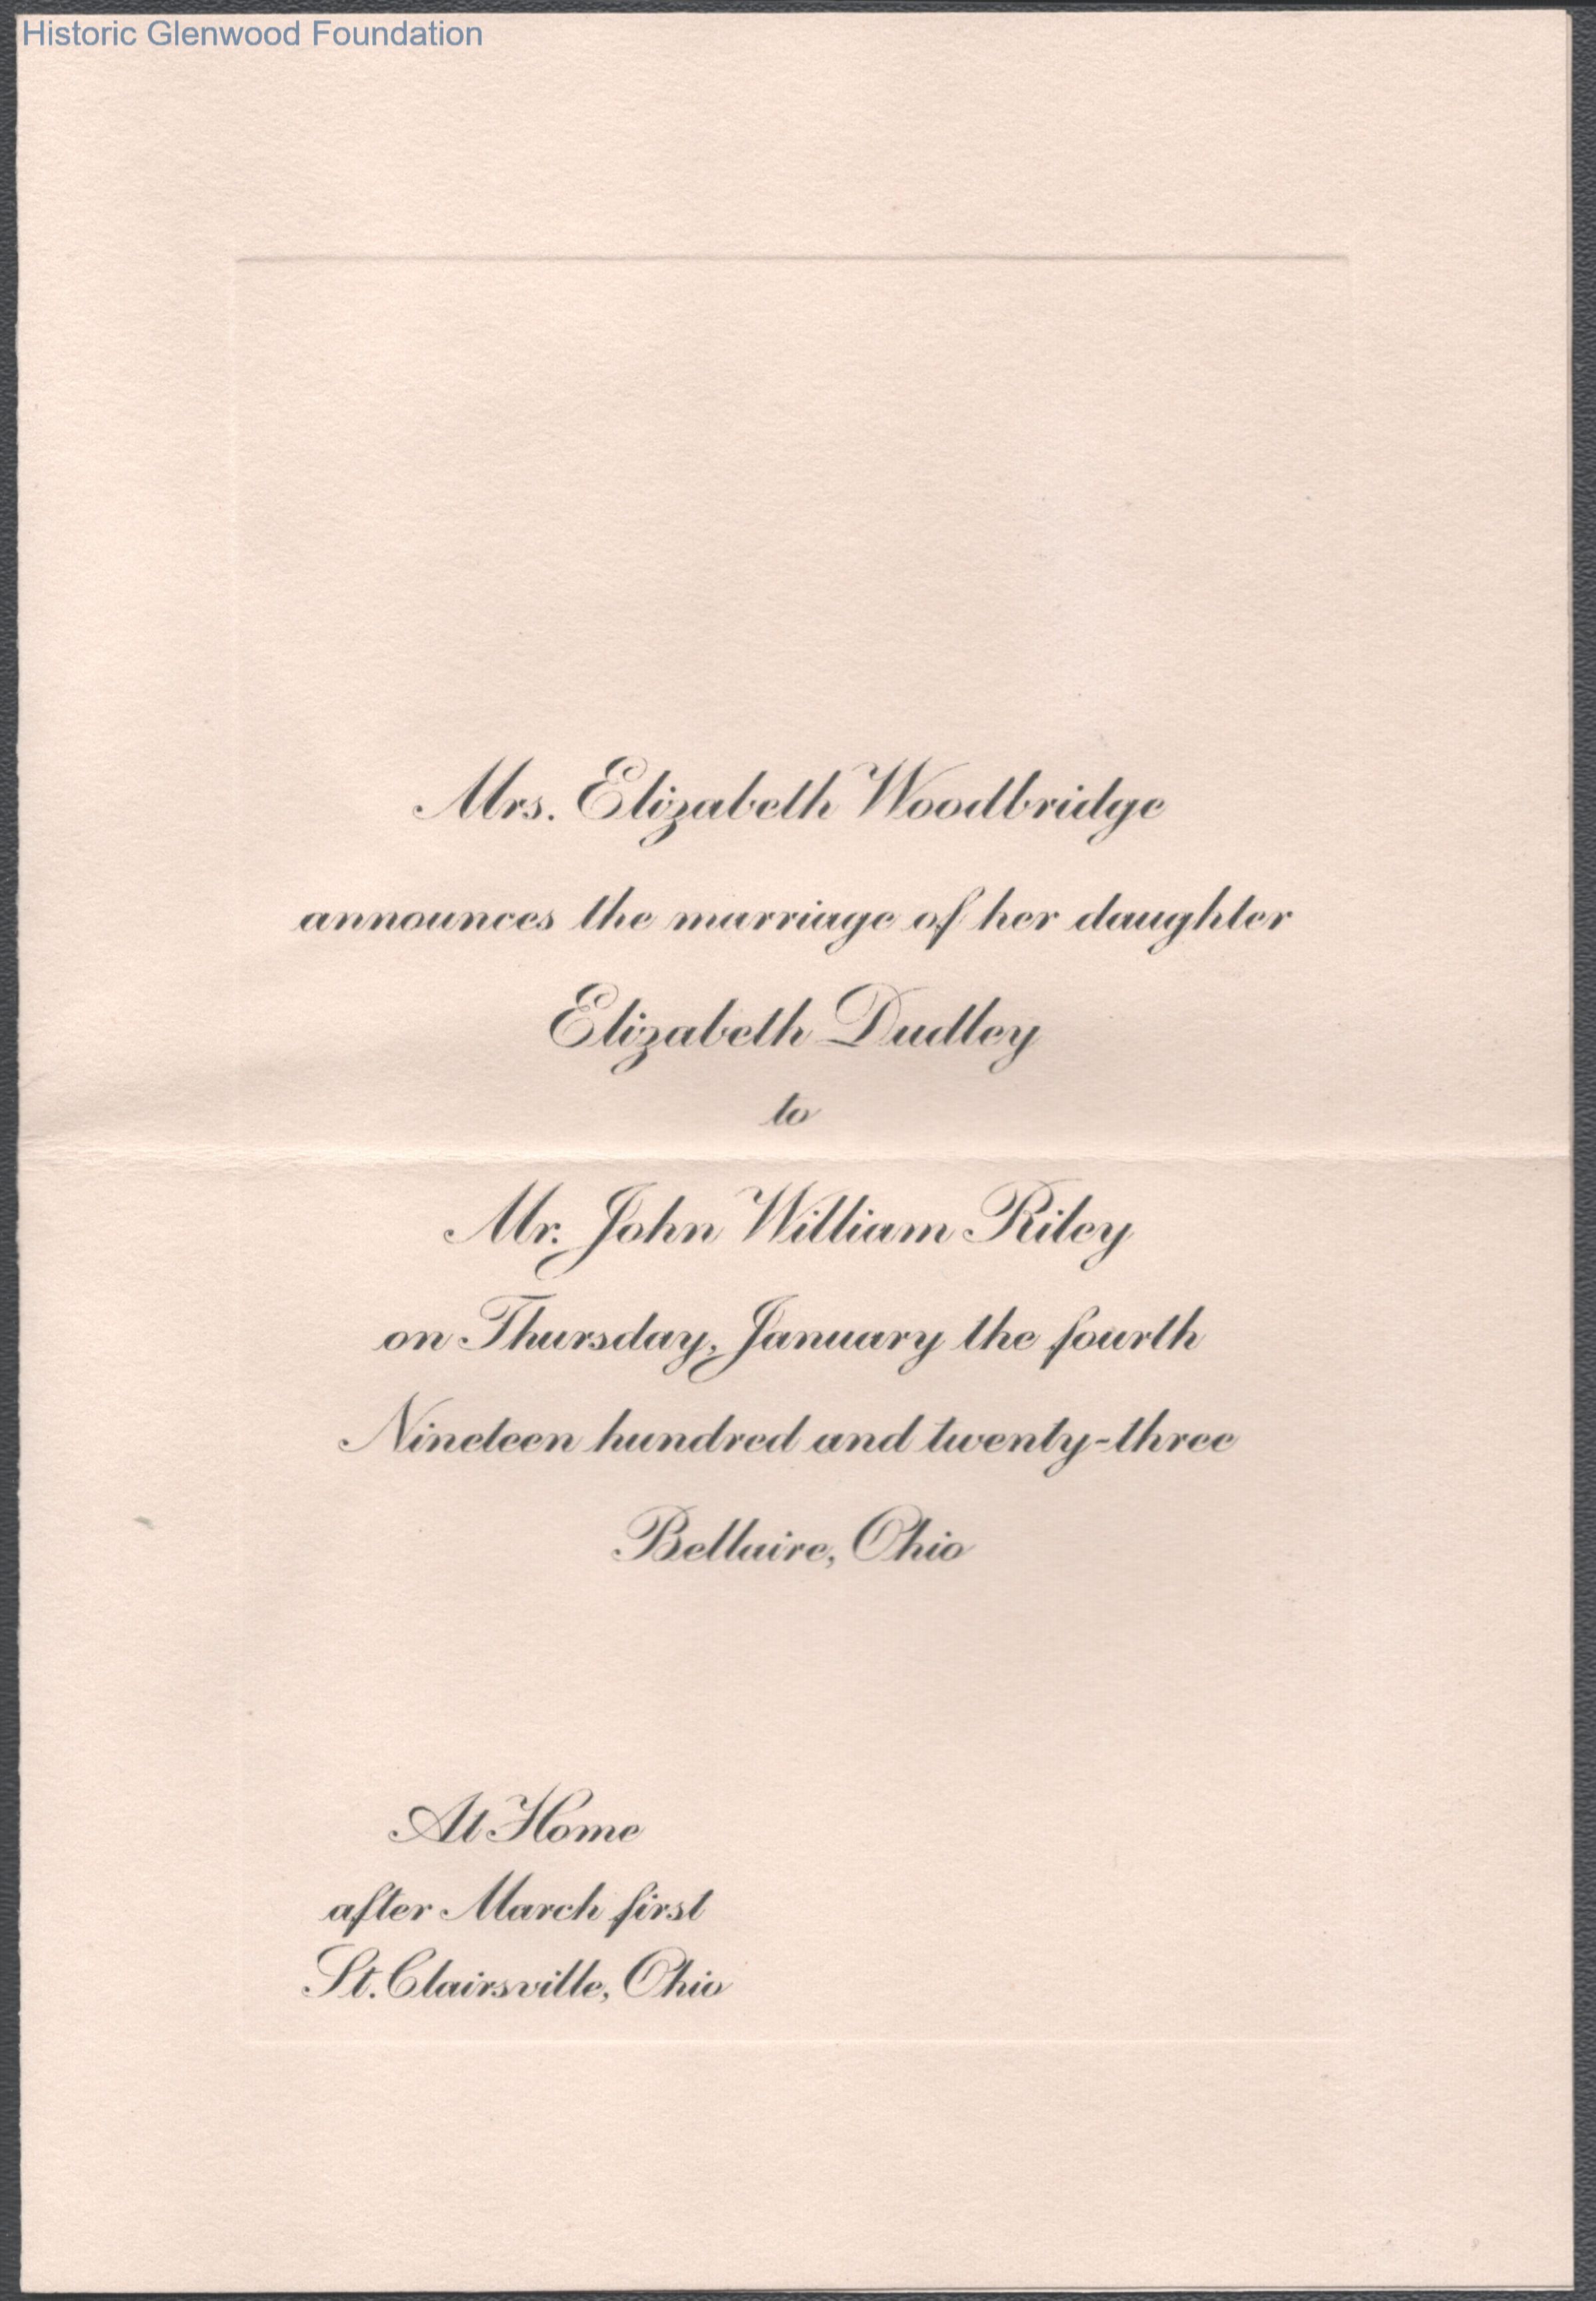 Historic Glenwood Foundation
Mrs. Elizabeth Woodbridge
announces the marriage of her daughter
Elizabeth Dudley
to
Mr. John William Riley
on Thursday, January the fourth
Nineteen hundred and twenty-three
Bellaire, Ohio
At Home
after March first
St. Clairsville, Ohio